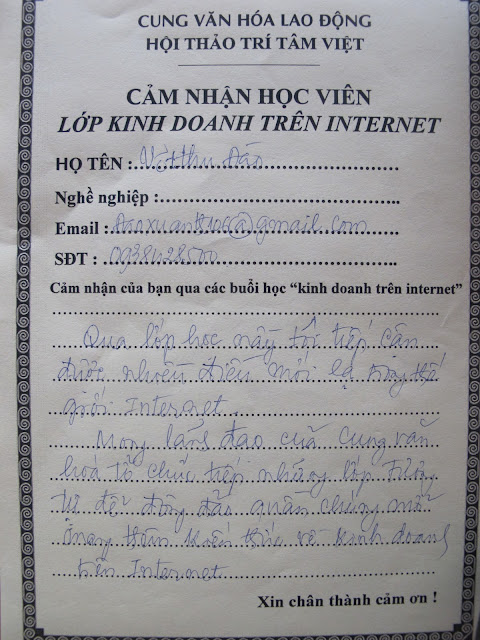 CUNG VĂN HÓA LAO ĐỘNG
HỘI THẢO TRÍ TÂM VIỆT
CẢM NHẬN HỌC VIÊN
LỚP KINH DOANH TRÊN INTERNET
HỌ TÊN : Thu Đào
Nghề nghiệp :
Email : @gmail.com
SĐT : 0938428500
Cảm nhận của bạn qua các buổi học “kinh doanh trên internet”
Qua lớp học này tôi tiếp cận
được nhiều điều mới lạ trong thế
giới Internet.
Mong lãnh đạo của Cung văn
hoá tổ chức tiếp những lớp tương
tự để đông đảo quần chúng mở
mang thêm kiến thức về kinh doanh
trên Internet
Xin chân thành cảm ơn !